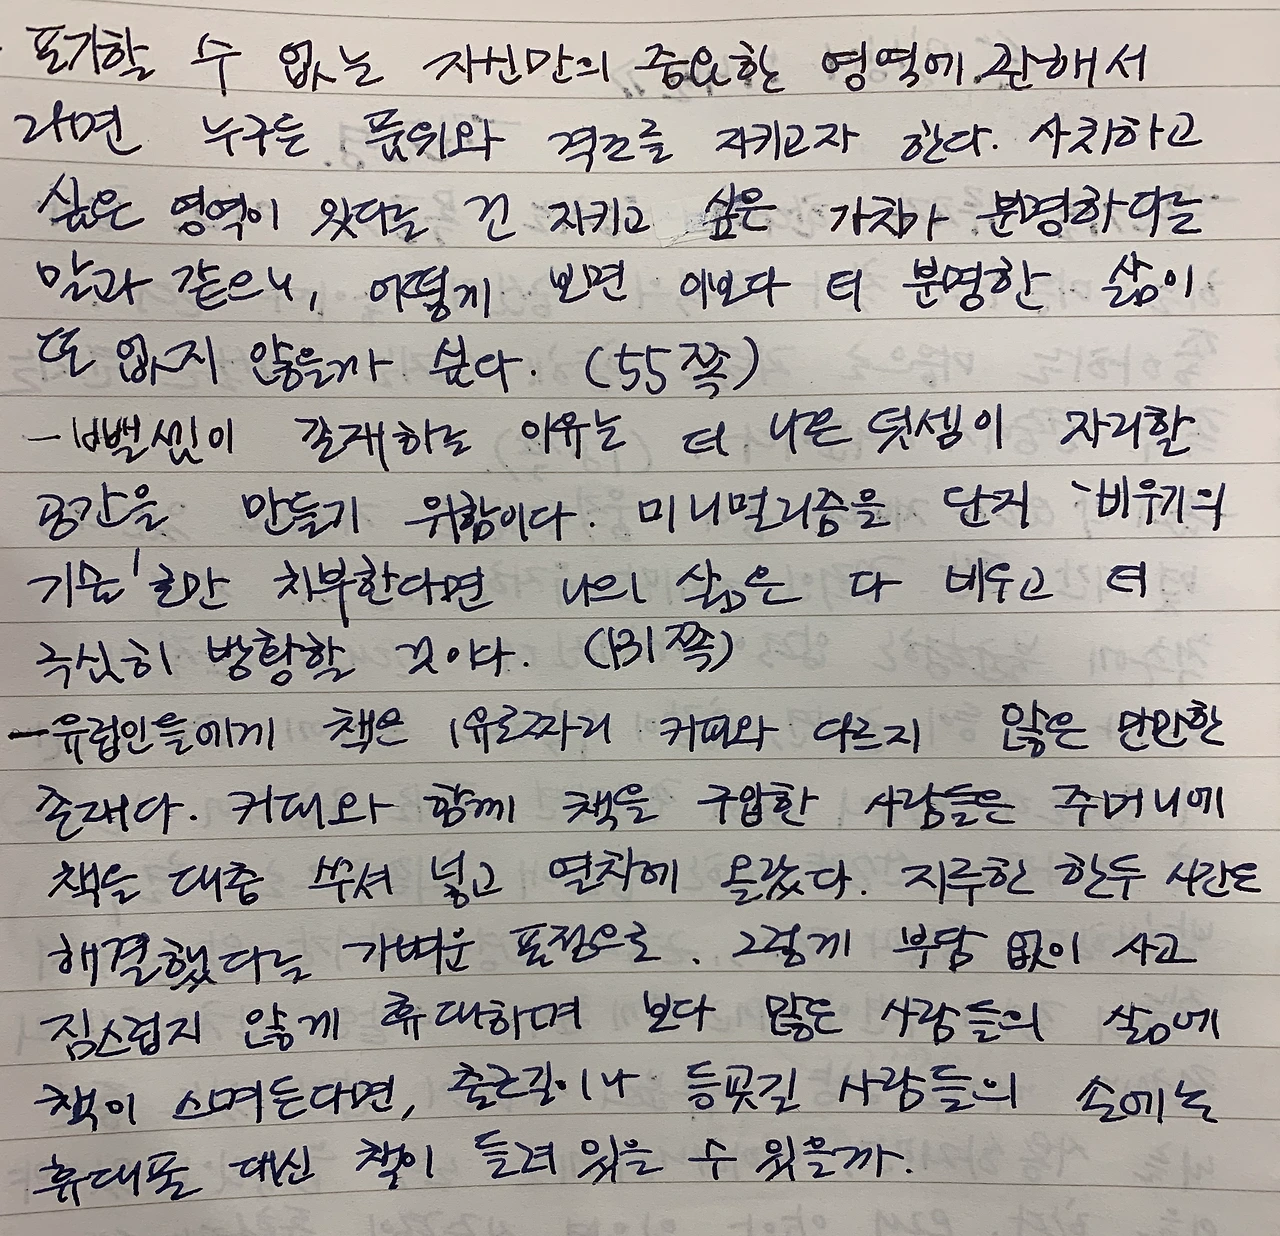 - 포기할 수 없는 자신만의 중요한 영역에 관해서
라면 누구든 품위와 격조를 지키고자 한다. 사치하고
싶은 영역이 있다는 건 지키고 싶은 가치가 분명하다는
말과 같으니, 어떻게 보면 이보다 더 분명한 삶이
또 없지 않을까 싶다. (55쪽)
- 뺄셈이 존재하는 이유는 더 나은 덧셈이 자리할
공간을 만들기 위함이다. 미니멀리즘을 단지 '비우기의
기쁨'으로만 치부한다면 나의 삶은 다 비우고 더
극심히 방황할 것이다. (131쪽)
- 유럽인들에게 책은 1유로짜리 커피와 다르지 않은 만만한
존재다. 커피와 함께 책을 구입한 사람들은 주머니에
책을 대충 쑤셔 넣고 열차에 올랐다. 지루한 한두 시간은
해결했다는 가벼운 표정으로. 그렇게 부담 없이 사고
짐스럽지 않게 휴대하며 보다 많은 사람들의 삶에
책이 스며든다면, 출근길이나 등굣길 사람들의 손에는
휴대폰 대신 책이 들려 있을 수 있을까.